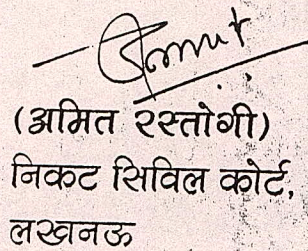 (अमित रस्तोगी)
निकट सिविल कोर्ट,
लखनऊ